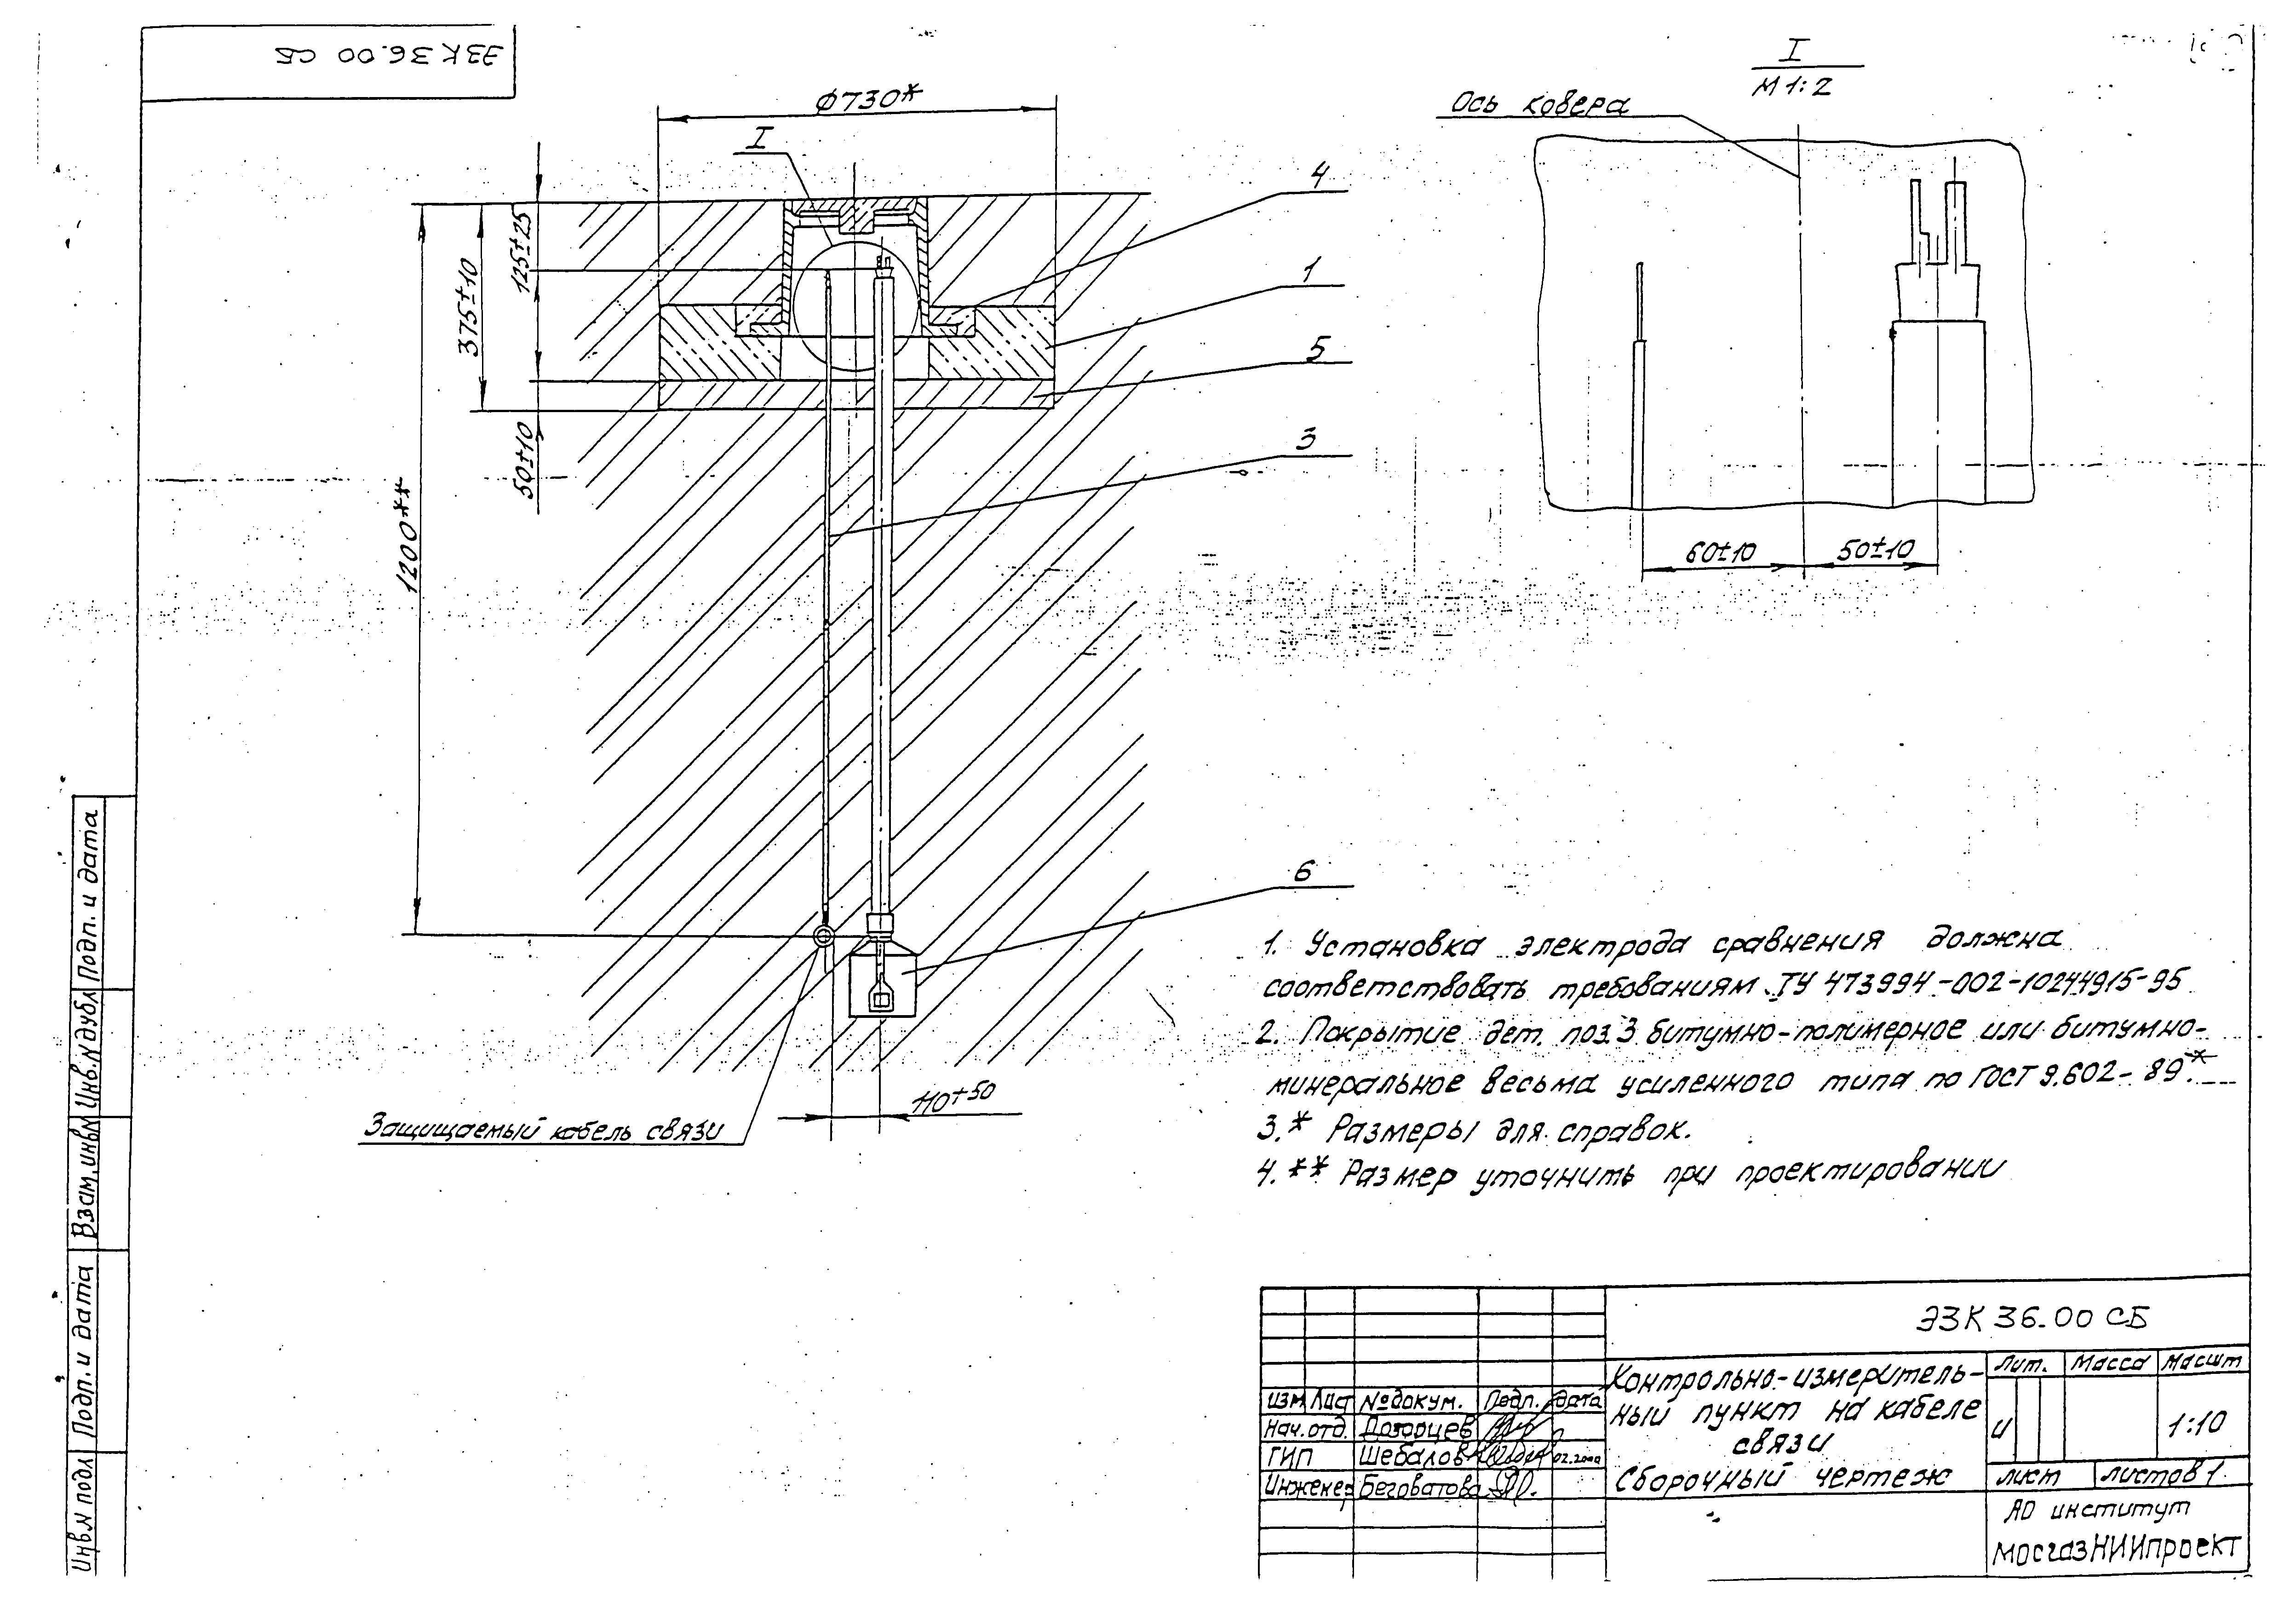 ЭЗК 36.00 СБ
Ф730*
I
4
1
5
3
6
125±25
375±10
50±10
1200**
110±50
Защищаемый кабель связи
I
М 1:2
Ось ковера
60±10
50±10
1. Установка электрода сравнения должна
соответствовать требованиям ТУ 473994-002-10244915-95
2. Покрытие дет. поз.3 битумно-полимерное или битумно-
минеральное весьма усиленного типа по ГОСТ 9.602-89*
3.* Размеры для справок.
4.** Размер уточнить при проектировании
ЭЗК 36.00 СБ
Контрольно-измеритель-
ный пункт на кабеле
связи
Сборочный чертеж
Лит. Масса Масшт
И 1:10
Лист Листов 1
АО институт
МосгазНИИпроект
Изм Лист №докум. Подп. Дата
Нач.отд. Дозорцев
ГИП Шебалов 02.2000
Инженер Беговатова
Подп. и дата
Инв.N дубл
Взам.инвN
Подп. и дата
Инв.N подл